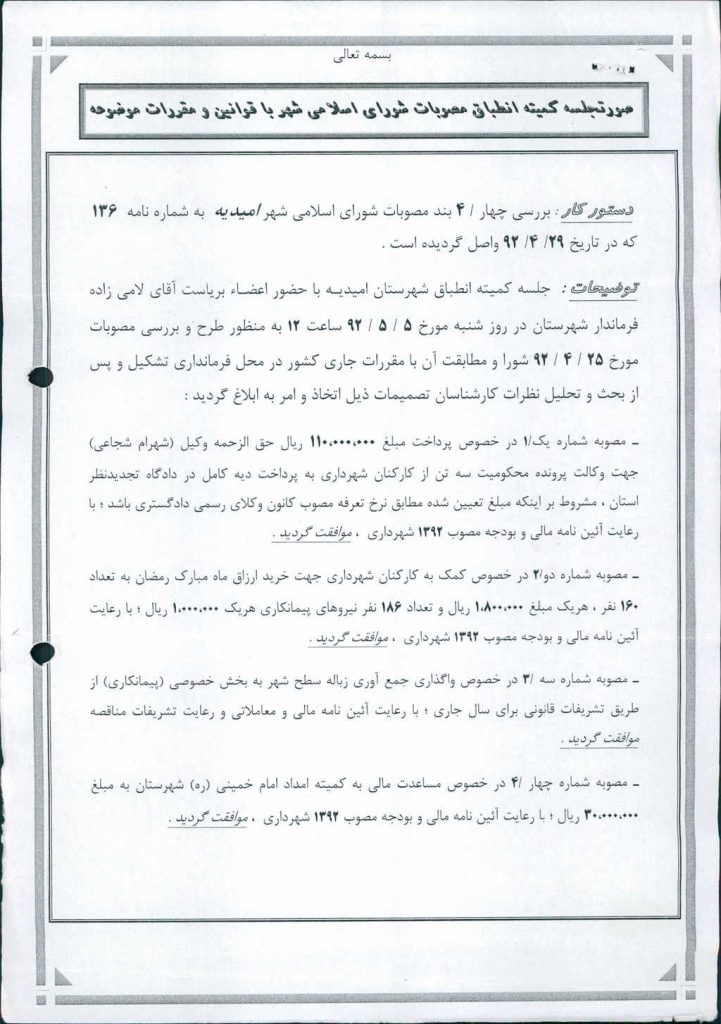 بسمه تعالی
صورتجلسه کمیته انطباق مصوبات شورای اسلامی شهر با قوانین و مقررات موضوعه
دستور کار : بررسی چهار / ۴ بند مصوبات شورای اسلامی شهر امیدیه به شماره نامه ۱۳۶
که در تاریخ ۲۹/ ۴/ ۹۲ واصل گردیده است .
توضیحات : جلسه کمیته انطباق شهرستان امیدیه با حضور اعضاء بریاست آقای لامی زاده
فرماندار شهرستان در روز شنبه مورخ ۵ / ۵ / ۹۲ ساعت ۱۲ به منظور طرح و بررسی مصوبات
مورخ ۲۵ / ۴ / ۹۲ شورا و مطابقت آن با مقررات جاری کشور در محل فرمانداری تشکیل و پس
از بحث و تحلیل نظرات کارشناسان تصمیمات ذیل اتخاذ و امر به ابلاغ گردید :
ـ مصوبه شماره یک/۱ در خصوص پرداخت مبلغ ۱۱۰،۰۰۰،۰۰۰ ریال حق الزحمه وکیل (شهرام شجاعی)
جهت وکالت پرونده محکومیت سه تن از کارکنان شهرداری به پرداخت دیه کامل در دادگاه تجدیدنظر
استان ، مشروط بر اینکه مبلغ تعیین شده مطابق نرخ تعرفه مصوب کانون وکلای رسمی دادگستری باشد ؛ با
رعایت آئین نامه مالی و بودجه مصوب ۱۳۹۲ شهرداری ، موافقت گردید .
ـ مصوبه شماره دو/۲ در خصوص کمک به کارکنان شهرداری جهت خرید ارزاق ماه مبارک رمضان به تعداد
۱۶۰ نفر ، هریک مبلغ ۱،۸۰۰،۰۰۰ ریال و تعداد ۱۸۶ نفر نیروهای پیمانکاری هریک ۱،۰۰۰،۰۰۰ ریال ؛ با رعایت
آئین نامه مالی و بودجه مصوب ۱۳۹۲ شهرداری ، موافقت گردید .
ـ مصوبه شماره سه /۳ در خصوص واگذاری جمع آوری زباله سطح شهر به بخش خصوصی (پیمانکاری) از
طریق تشریفات قانونی برای سال جاری ؛ با رعایت آئین نامه مالی و معاملاتی و رعایت تشریفات مناقصه
موافقت گردید .
ـ مصوبه شماره چهار /۴ در خصوص مساعدت مالی به کمیته امداد امام خمینی (ره) شهرستان به مبلغ
۳۰،۰۰۰،۰۰۰ ریال ؛ با رعایت آئین نامه مالی و بودجه مصوب ۱۳۹۲ شهرداری ، موافقت گردید .